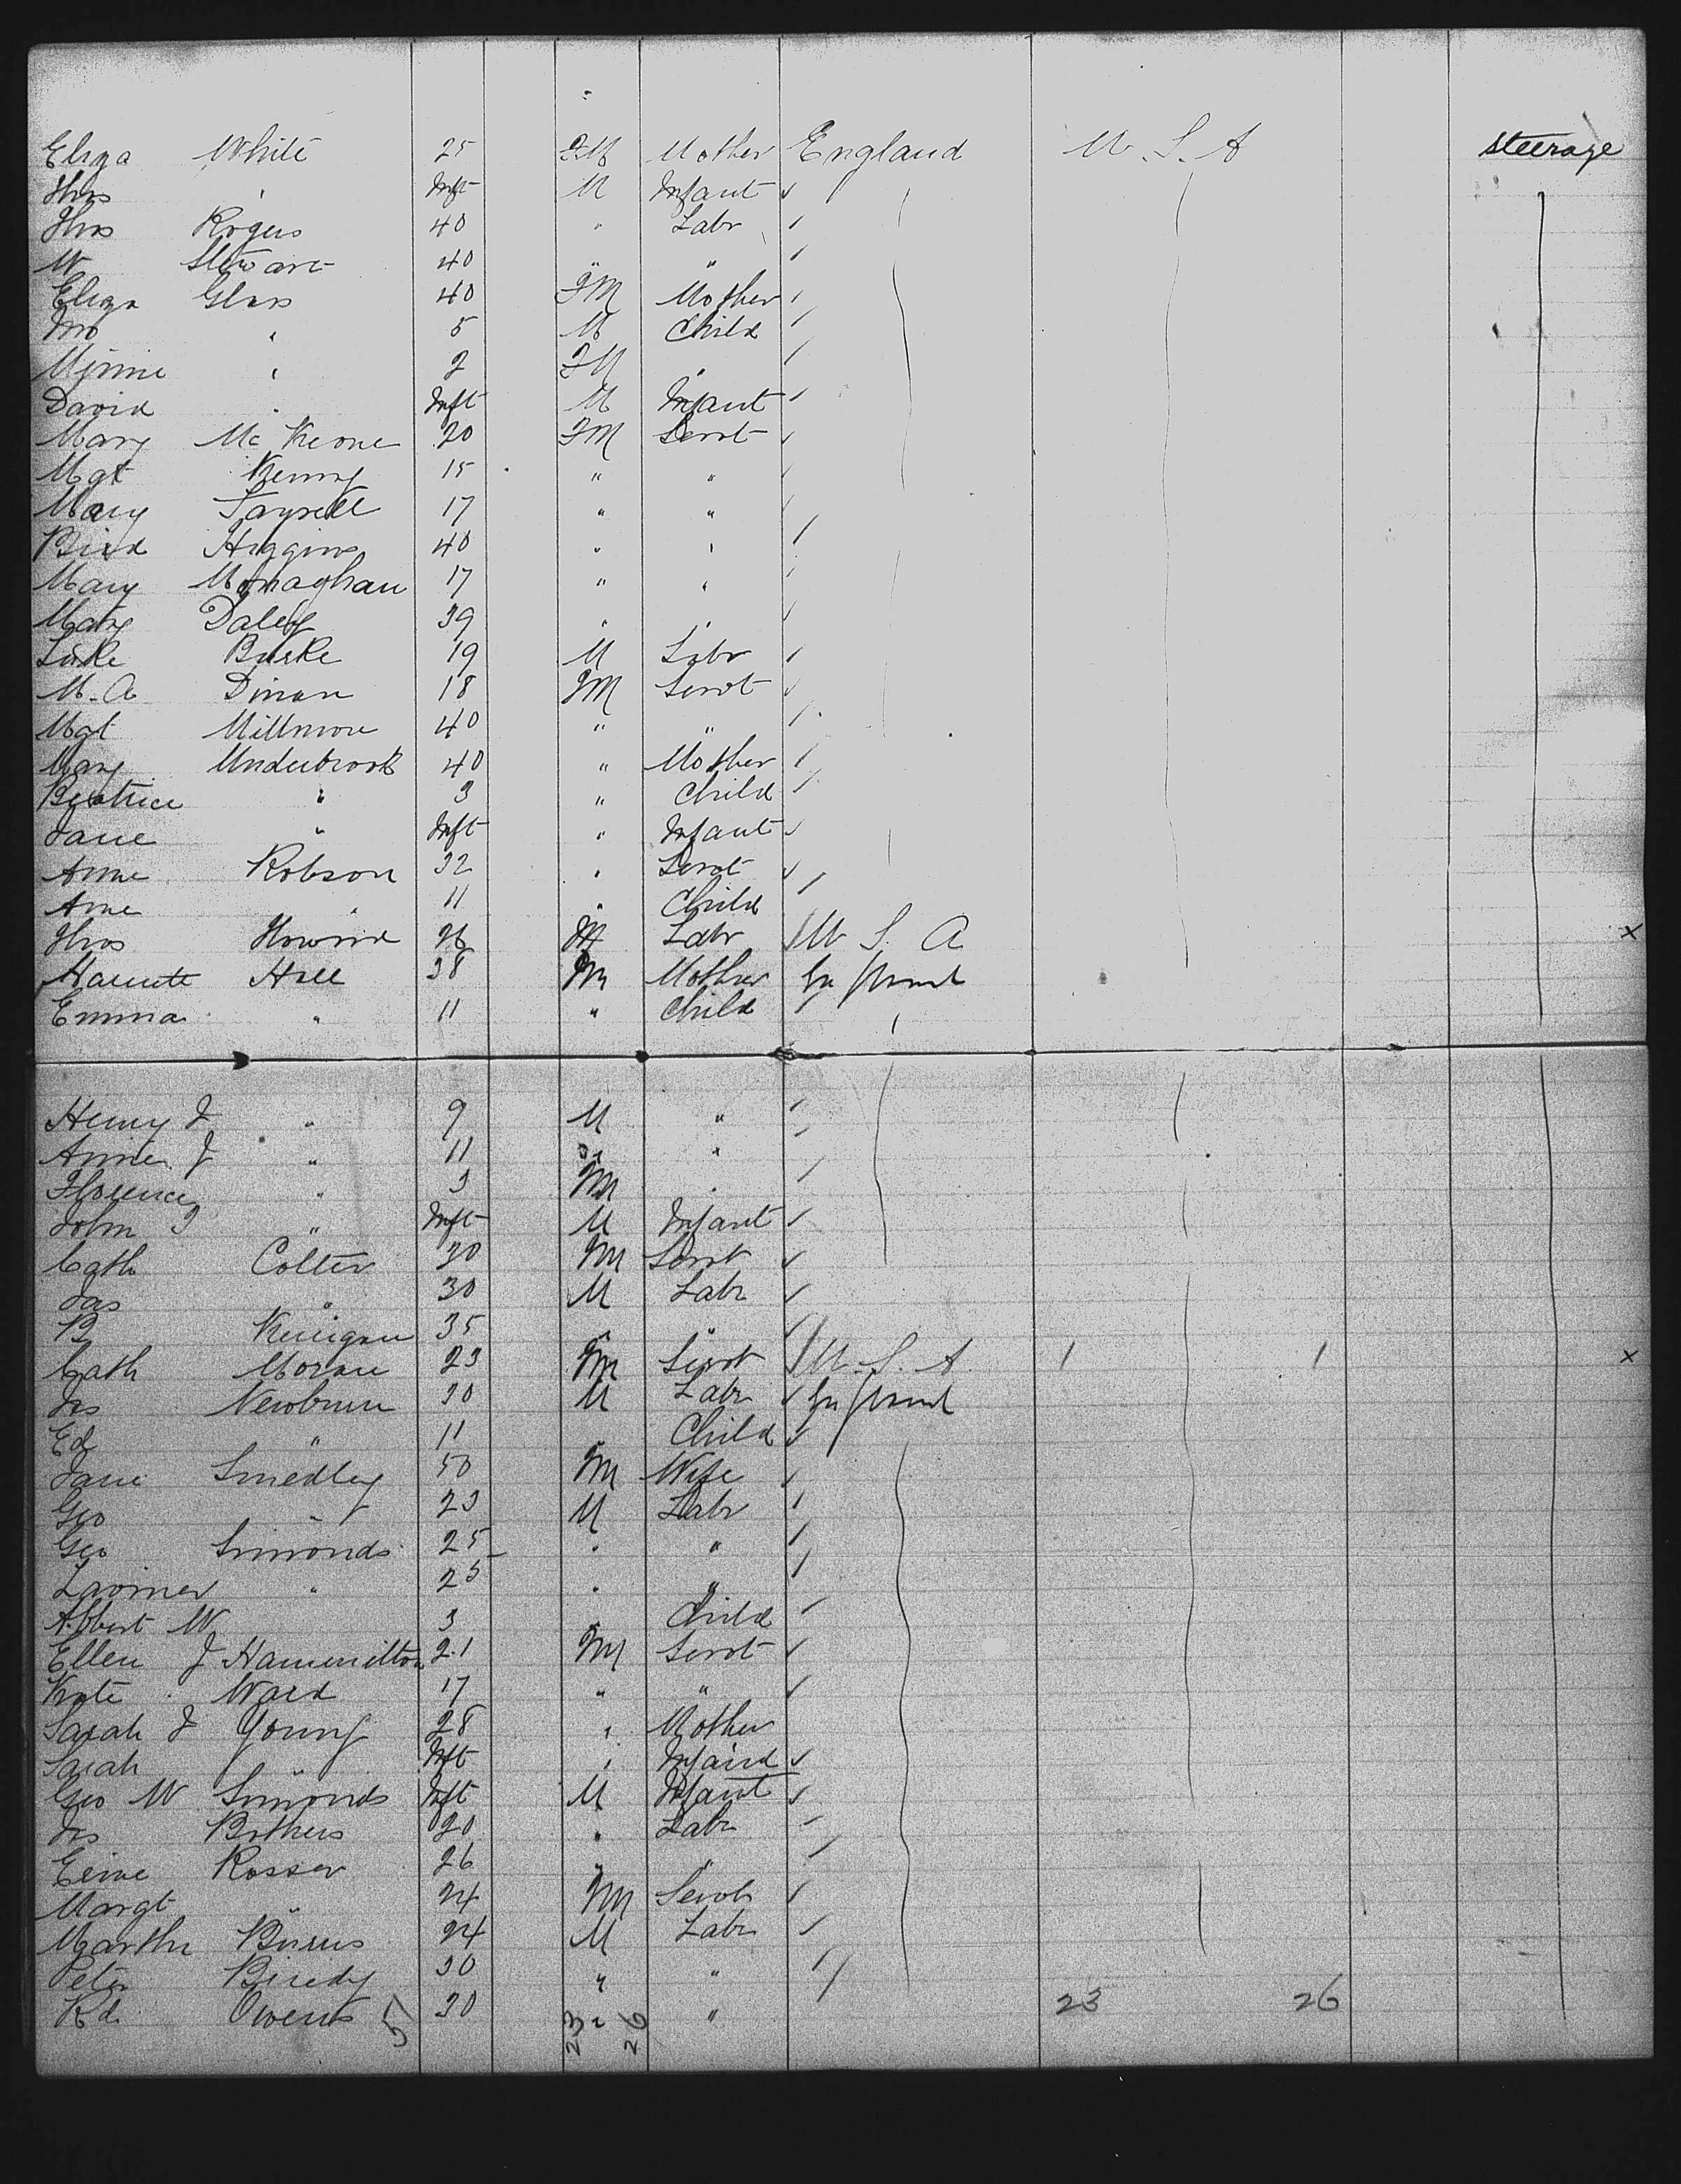 Eliza White 25 FM Mother England U.S.A steerage
Thos " Inft M Infant
Thos Rogers 40 " Labr
W Stewart 40 " "
Eliza Glass 40 FM Mother
Jno " 5 M Child
Minnie " 2 FM "
David " Inft M Infant
Mary McKeone 20 FM Servt
Mgt Kenny 15 " "
Mary 17 " "
Bird Higgins 40 " "
Mary Monaghan 17 " "
Mary Daley 39 " "
Luke Burke 19 M Labr
M.A Dinan 18 FM Servt
Mgt Millmore 40 " "
Mary Underbrook 40 " Mother
Beatrice " 3 " Child
Jane " Inft " Infant
Anne Robson 32 " Servt
Ame " 11 " Child
Thos Howard 26 M Labr U S. A x
Hall 38 FM Mother England
Emma " 11 " Child
Henry J " 9 M "
Annie J " 11 "
Florence " 3 FM "
John T " Inft M Infant
Cath Colter 30 FM Servt
Jas " 30 M Labr
B 35 " "
Cath Moran 23 FM Servt U.S.A. 1 1 x
Jas Newburn 30 M Labr England
Ed " 11 " Child
Jane Smedley 50 FM Wife
Geo " 23 M Labr
Geo Simonds 25 " "
" 25 " "
Albert W 3 " Child
Ellen J Hammilton 21 FM Servt
Kate Ward 17 " "
Sarah J Young 28 " Mother
Sarah " Inft " Infant
Geo W Simonds Inft M Infant
Jas Bothers 20 " Labr
Rosser 26 " "
Margt " 24 FM Servt
Martha Burns 24 M Labr
Peter 30 " "
Rd Owens 51 30 " " 23 26 23 26